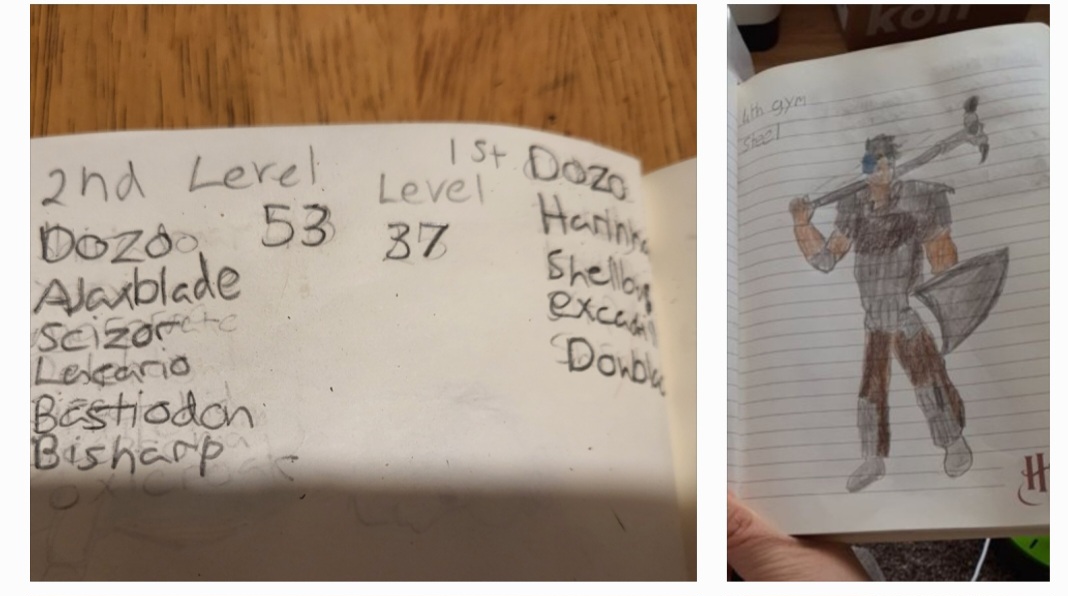 2nd Level
Dozo 53
Ajaxblade
Scizor
Lexcario
Bastiodon
Bisharp
1st
Level
37
Dozo
Harink
Shellbu
excadri
Doubla
4th gym
Steel
koff
H